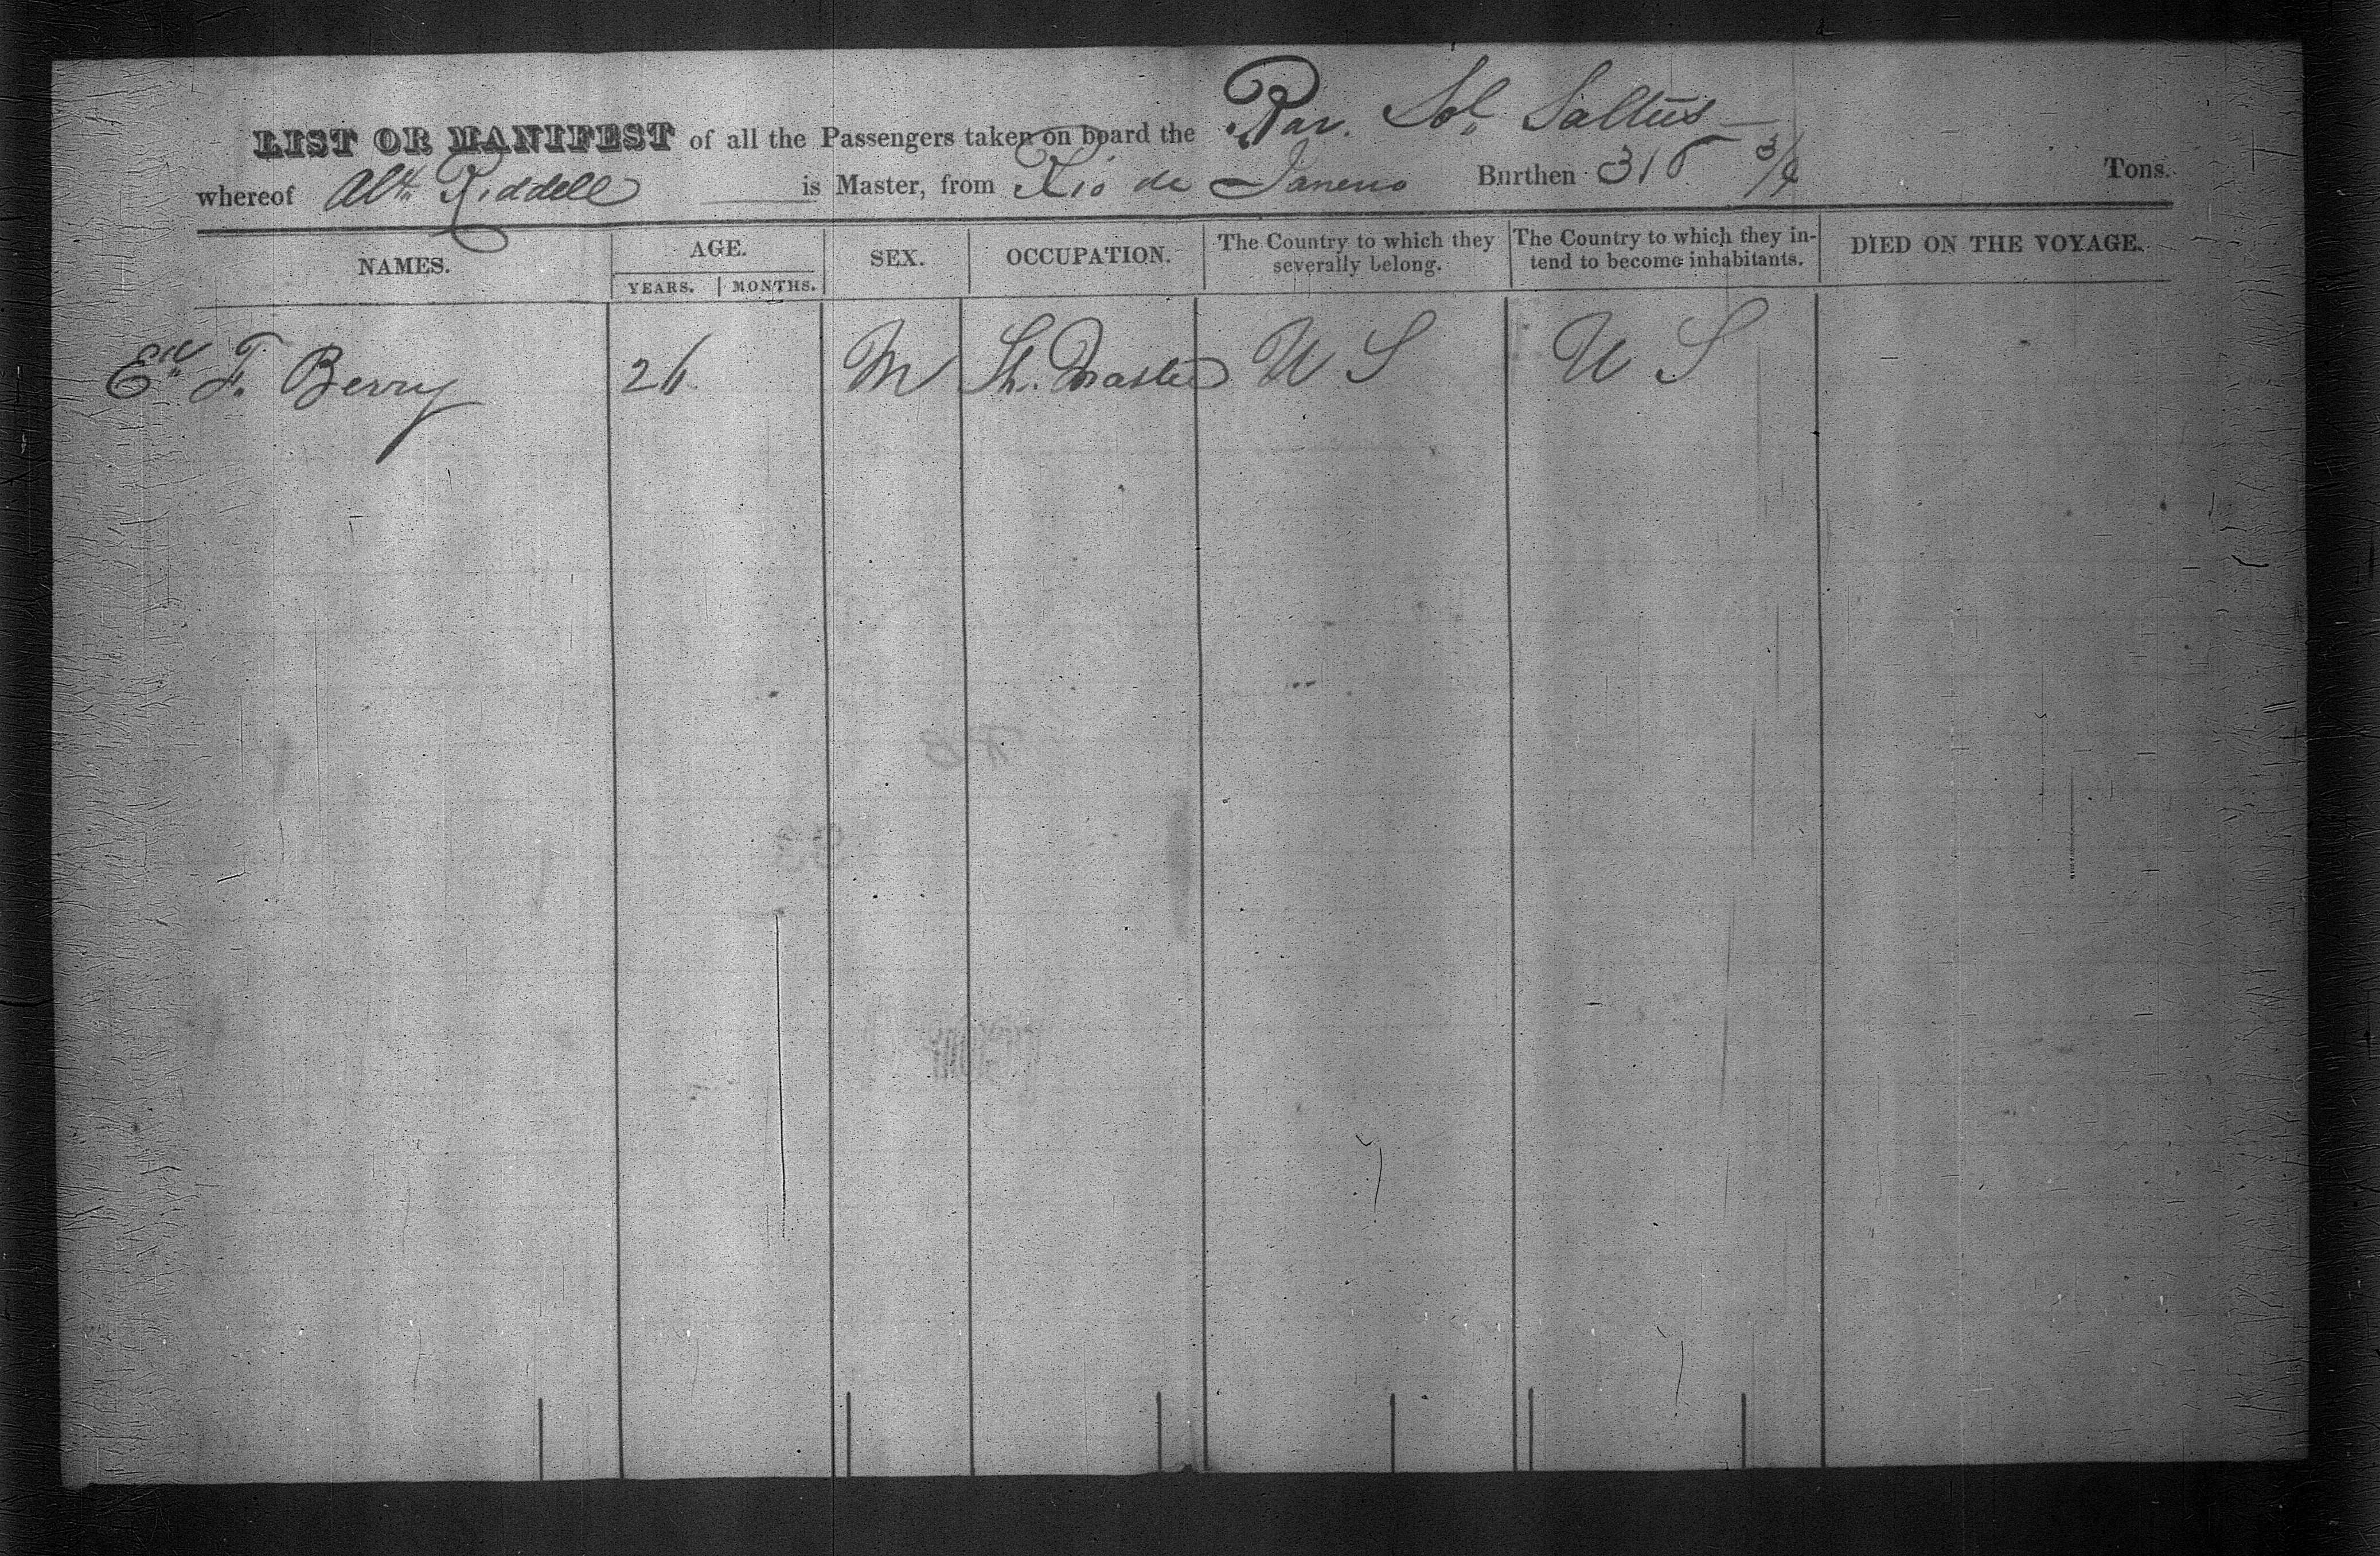 LIST OR MANIFEST of all the Passengers taken on board the Bar. Sol. Saltus
whereof Riddell is Master, from Rio de Janeiro Burthen 316 3/4 Tons.
NAMES. AGE. SEX. OCCUPATION. The Country to which they severally belong. The Country to which they intend to become inhabitants. DIED ON THE VOYAGE.
YEARS. MONTHS.
F. Berry 26 M Sh. Master U S U S